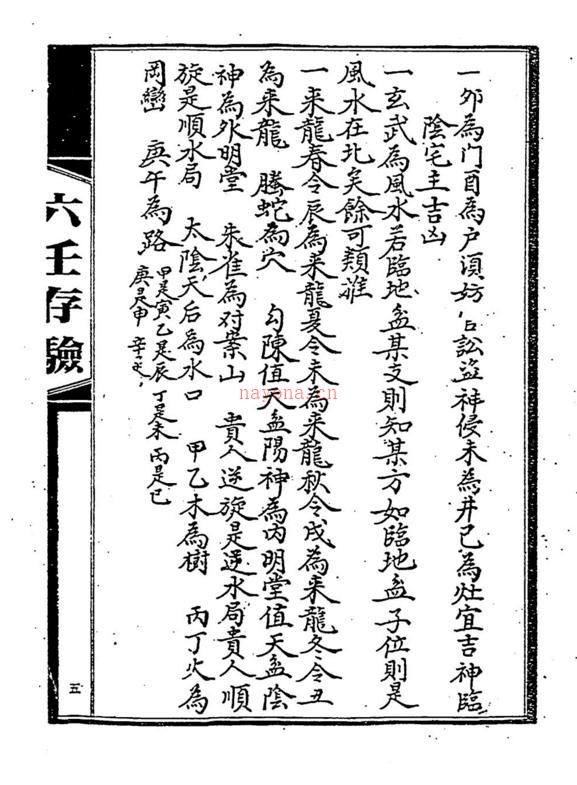 一 夘為门酉為户須妨口訟盜神侵未為井巳為灶宜吉神臨
陰宅主吉凶
一玄武為風水若臨地盆某支則知某方如臨地盆子位則是
風水在北矣餘可類推
一來龍春令辰為来龍夏令未為来龍秋令戌為来龍冬令丑
為来龍 螣蛇為穴 勾陳值天盆陽神為内明堂值天盆陰
神為外明堂 朱雀為对案山 貴人逆旋是逆水局貴人順
旋是順水局 太陰天后為水口 甲乙木為樹 丙丁火為
岡巒 庚午為路 甲是寅乙是辰丁是未丙是巳
庚是申辛是
六壬存驗
五
nayona.cn